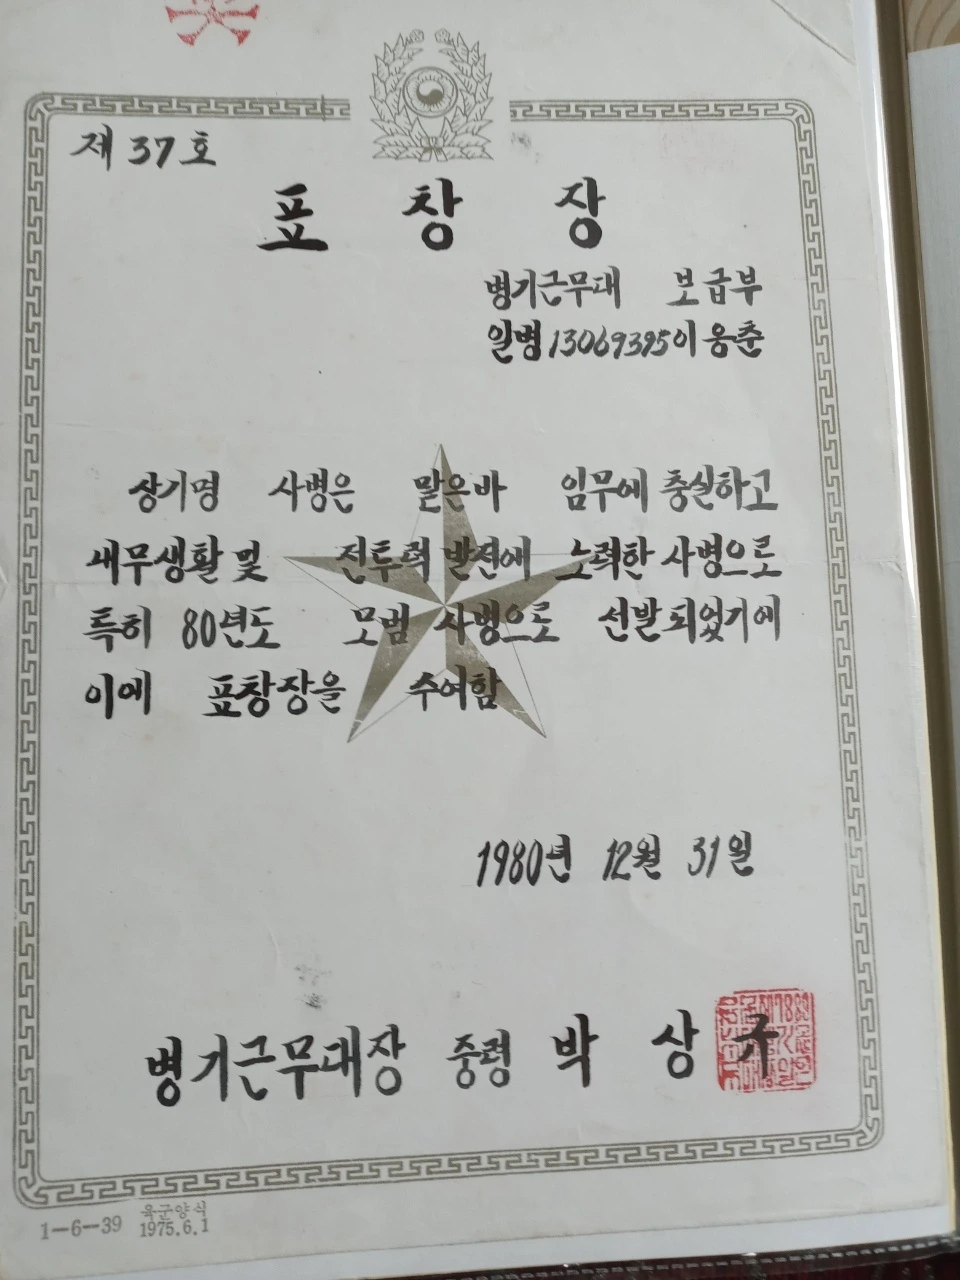 제 37 호
표 창 장
병기근무대 보급부
일병 13069395 이 웅춘
상기명 사병은 맡은바 임무에 충실하고
내무생활 및 전투력 발전에 노력한 사병으로
특히 80년도 모범 사병으로 선발 되었기에
이에 표창장을 수여함
1980년 12월 31일
병기근무대장 중령 박 상 규
육군양식
1-6-39 1975.6.1